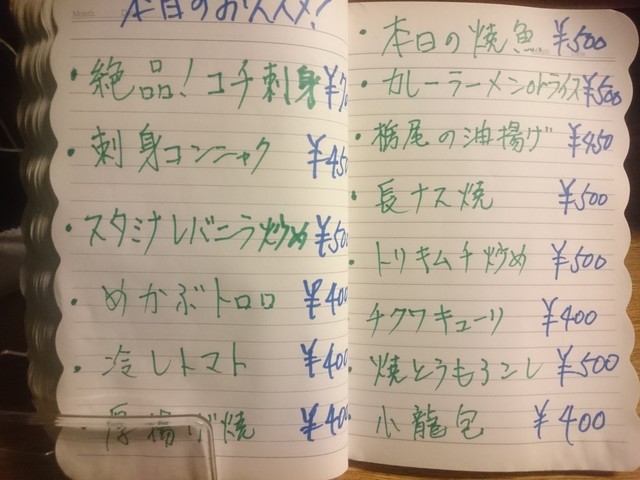 本日のおススメ!
・絶品!コチ刺身 ¥7
・刺身コンニャク ¥450
・スタミナレバニラ炒め ¥500
・めかぶトロロ ¥400
・冷しトマト ¥400
・厚揚げ焼 ¥400
・本日の焼魚 ¥500
・カレーラーメンorライス ¥500
・栃尾の油揚げ ¥450
・長ナス焼 ¥500
・トリキムチ炒め ¥500
チクワキューリ ¥400
・焼とうもろコシ ¥500
小龍包 ¥400